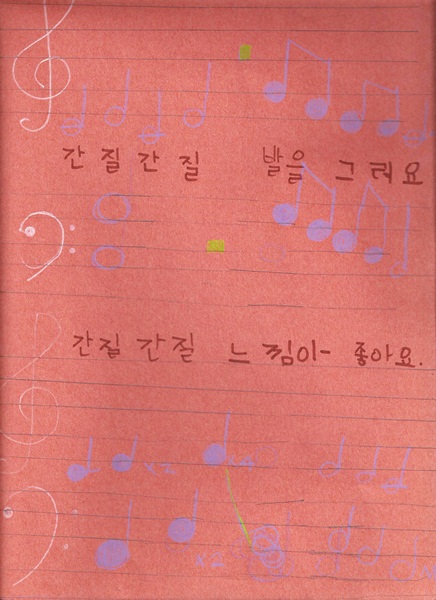 간질간질 발을 그려요
x2
간질간질 느낌이- 좋아요.
x2
x2